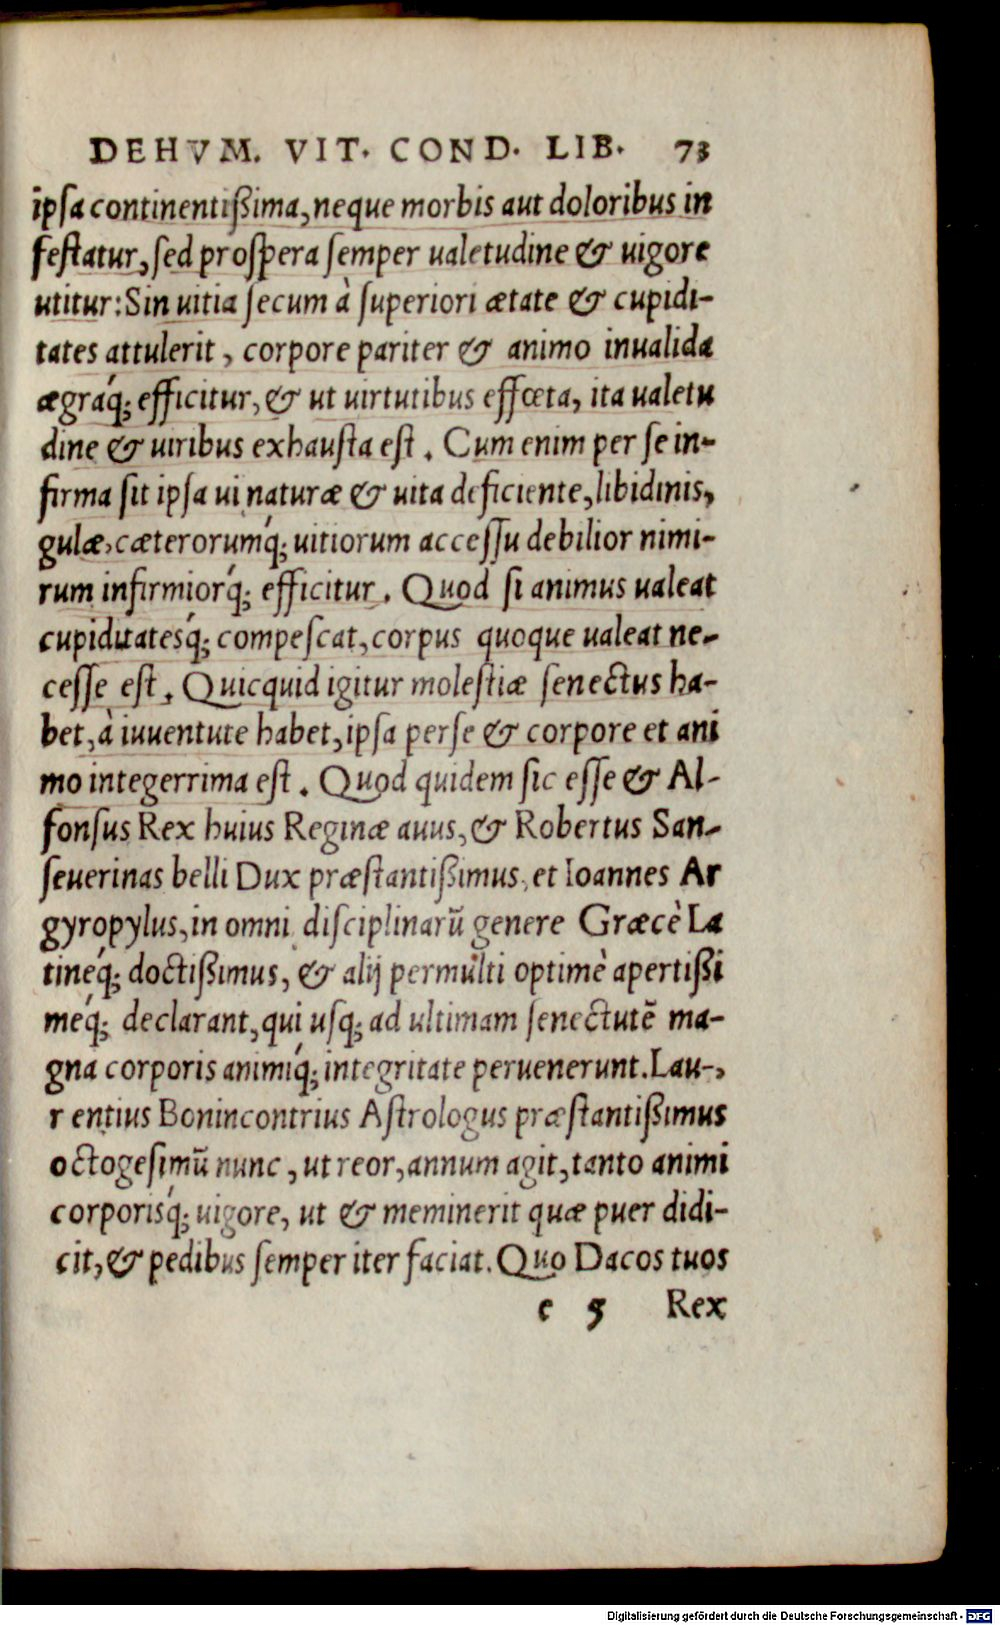 DE HVM. VIT. COND. LIB. 73
ipsa continentißima, neque morbis aut doloribus in
festatur, sed prospera semper ualetudine & uigore
utitur: Sin uitia secum à superiori ætate & cupidi-
tates attulerit, corpore pariter & animo inualida
ægráq; efficitur, & ut uirtutibus effœta, ita ualetu
dine & uiribus exhausta est. Cum enim per se in-
firma sit ipsa ui naturæ & uita deficiente, libidinis,
gulæ, cæterorumq́; uitiorum accessu debilior nimi-
rum infirmiorq́; efficitur. Quod si animus ualeat
cupiditatesq́; compescat, corpus quoque ualeat ne-
cesse est. Quicquid igitur molestiæ senectus ha-
bet, à iuuentute habet, ipsa per se & corpore et ani
mo integerrima est. Quod quidem sic esse & Al-
fonsus Rex huius Reginæ auus, & Robertus San-
seuerinas belli Dux præstantißimus, et Ioannes Ar
gyropylus, in omni disciplinarũ genere Græcè La
tineq́; doctißimus, & alij permulti optimè apertißi
meq́; declarant, qui usq; ad ultimam senectutẽ ma-
gna corporis animiq́; integritate peruenerunt. Lau-,
rentius Bonincontrius Astrologus præstantißimus
octogesimũ nunc, ut reor, annum agit, tanto animi
corporisq́; uigore, ut & meminerit quæ puer didi-
cit, & pedibus semper iter faciat. Quo Dacos tuos
e 5 Rex
Digitalisierung gefördert durch die Deutsche Forschungsgemeinschaft - DFG